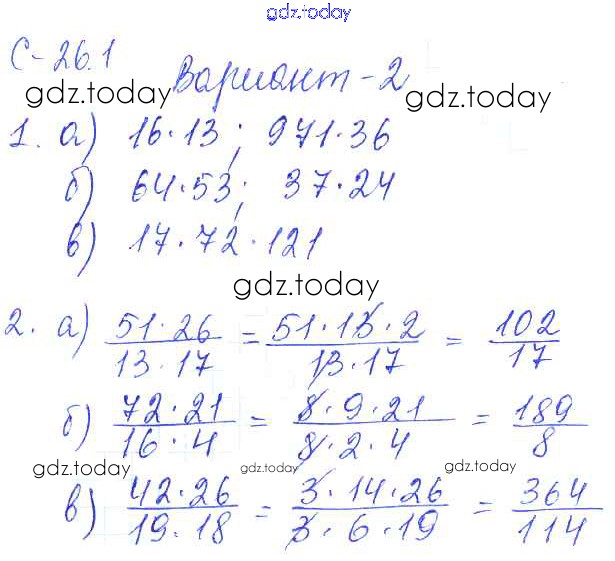 gdz.today
С-26.1
Вариант-2
gdz.today gdz.today
1. а) 16·13; 971·36
б) 64·53; 37·24
в) 17·72·121
gdz.today
2. а) 51·26/13·17 = 51·13·2/13·17 = 102/17
б) 72·21/16·4 = 8·9·21/8·2·4 = 189/8
gdz.today gdz.today gdz.today
в) 42·26/19·18 = 3·14·26/3·6·19 = 364/114